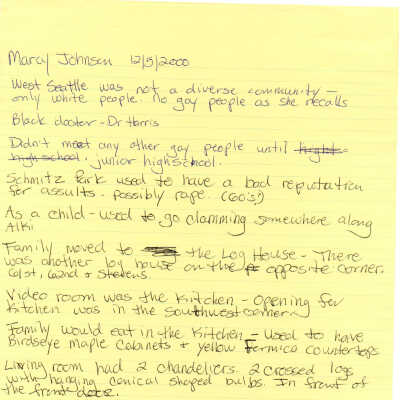 Marcy Johnsen 12/5/2000
West Seattle was not a diverse community -
only white people. no gay people as she recalls
Black doctor - Dr Harris
Didn't meet any other gay people until
high school. junior highschool.
Schmitz Park used to have a bad reputation
for assults. possibly rape. (60's?)
As a child - used to go clamming somewhere along
Alki
Family moved to the Log House - There
was another log house on the opposite corner.
61st, 62nd & Stevens.
Video room was the kitchen - opening for
kitchen was in the southwest corner
Family would eat in the kitchen - used to have
Birdseye maple cabnets + yellow Formica countertops
Living room had 2 chandeliers. 2 crossed logs
with hanging conical shaped bulbs. In front of
the front door.